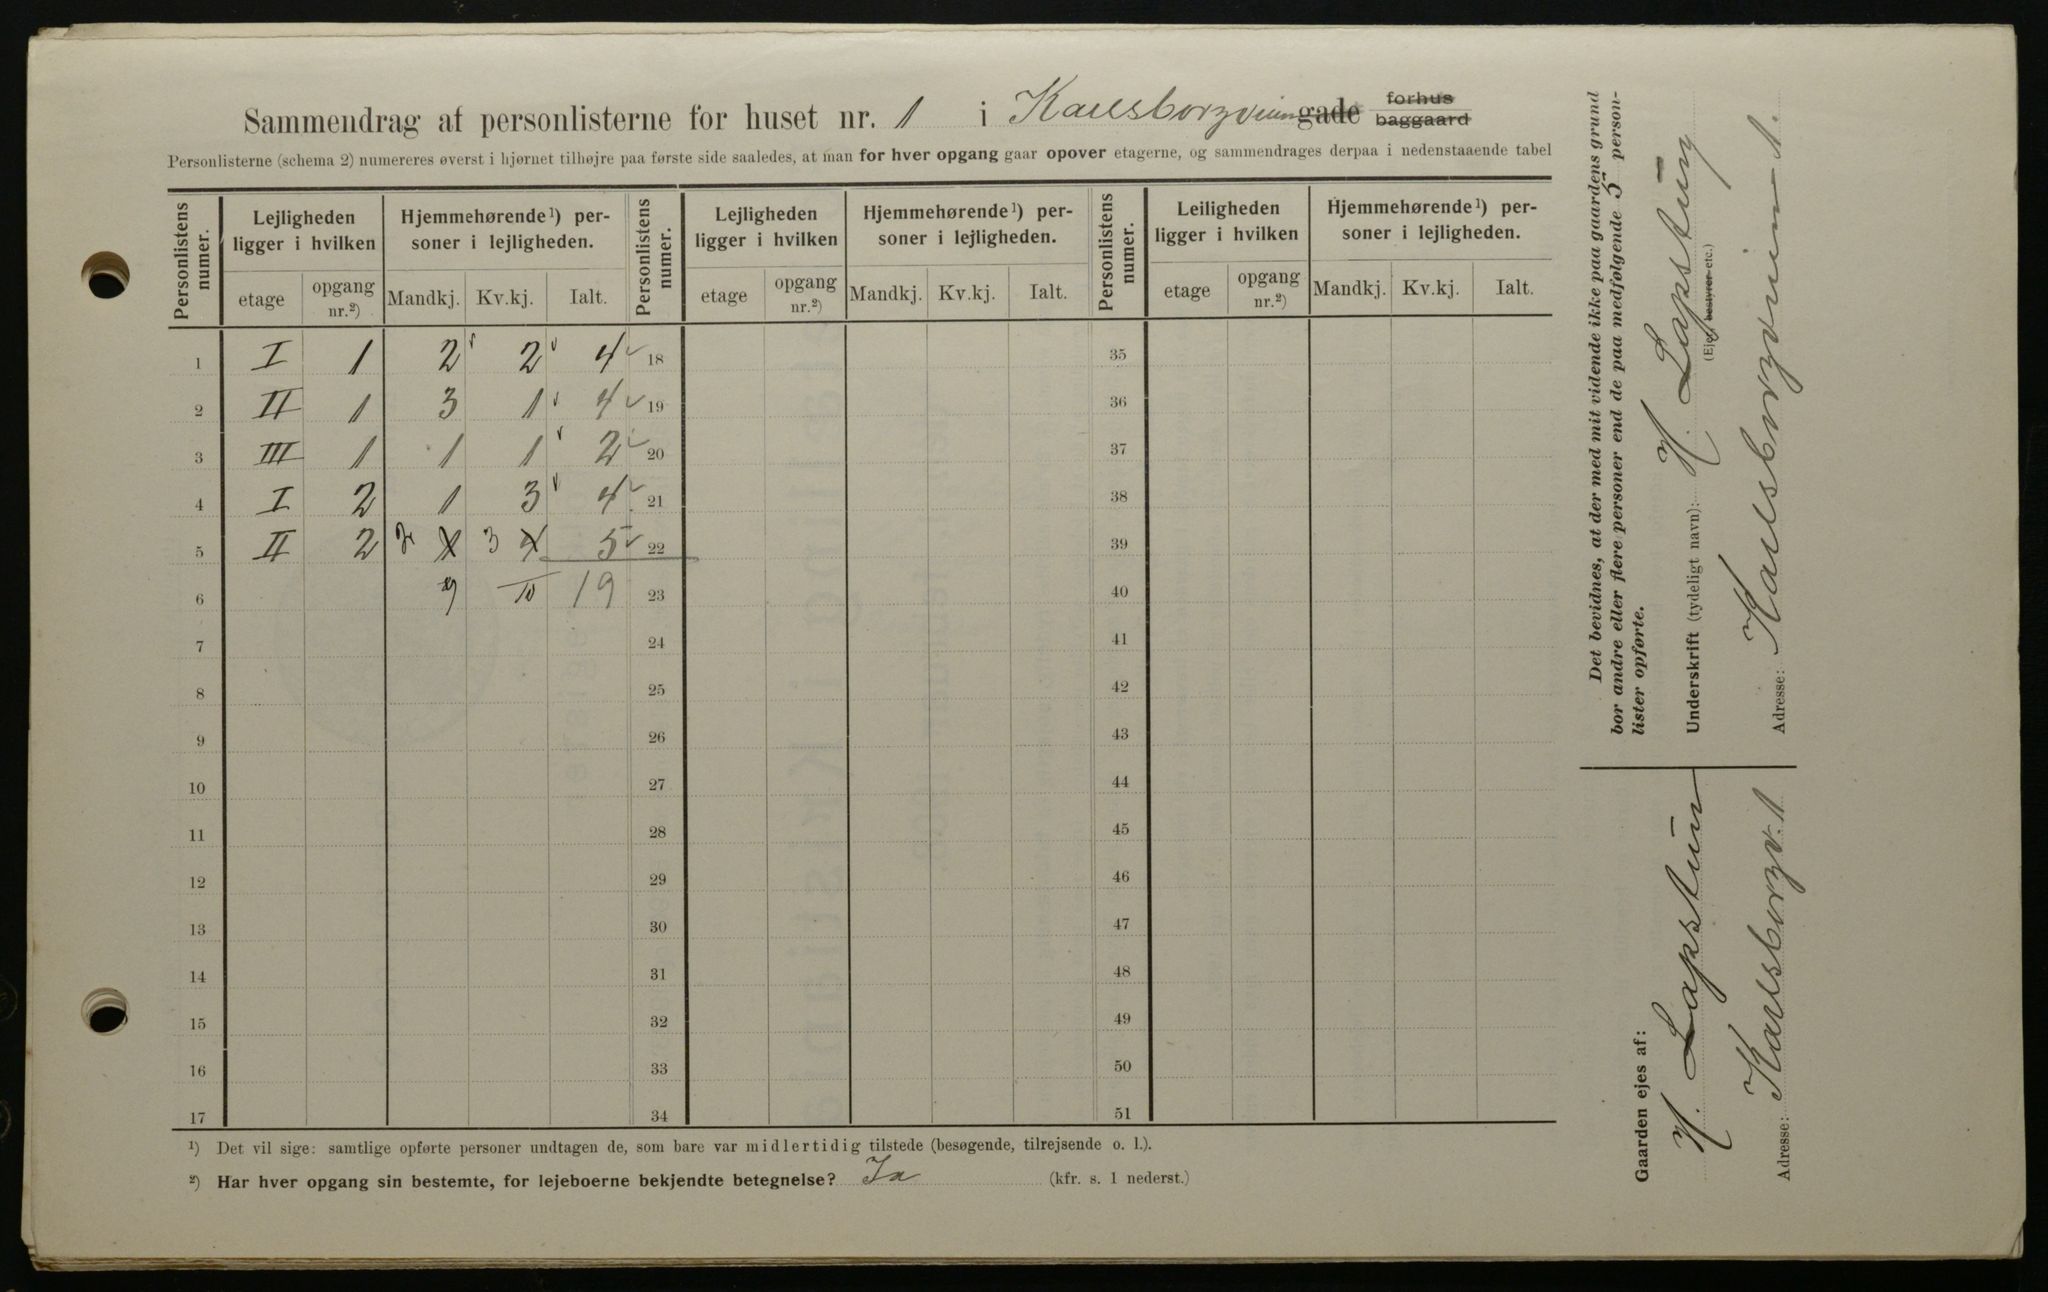 Sammendrag af personlisterne for huset nr. 1 i Karlsborgveien gade forhus baggaard
Personlisterne (schema 2) numereres øverst i hjørnet tilhøjre paa første side saaledes, at man for hver opgang gaar opover etagerne, og sammendrages derpaa i nedenstaaende tabel
Personlistens numer. Lejligheden ligger i hvilken Hjemmehørende¹) personer i lejligheden. Personlistens numer. Lejligheden ligger i hvilken Hjemmehørende¹) personer i lejligheden. Personlistens numer. Leiligheden ligger i hvilken Hjemmehørende¹) personer i lejligheden.
etage opgang nr.²) Mandkj. Kv.kj. Ialt. etage opgang nr.²) Mandkj. Kv.kj. Ialt. etage opgang nr.²) Mandkj. Kv.kj. Ialt.
1 I 1 2 2 4 18 35
2 II 1 3 1 4 19 36
3 III 1 1 1 2 20 37
4 I 2 1 3 4 21 38
5 II 2 2 1 3 4 5 22 39
6 9 10 19 23 40
7 24 41
8 25 42
9 26 43
10 27 44
11 28 45
12 29 46
13 30 47
14 31 48
15 32 49
16 33 50
17 34 51
¹) Det vil sige: samtlige opførte personer undtagen de, som bare var midlertidig tilstede (besøgende, tilrejsende o. l.).
²) Har hver opgang sin bestemte, for lejeboerne bekjendte betegnelse? Ja (kfr. s. 1 nederst.)
Det bevidnes, at der med mit vidende ikke paa gaardens grund
bor andre eller flere personer end de paa medfølgende 5 person-
lister opførte.
Underskrift (tydeligt navn): H. Lapstun
(Ejer bestyrer etc.)
Adresse: Karlsborgveien 1.
Gaarden ejes af:
H. Lapstun
Adresse: Karlsborgv. 1